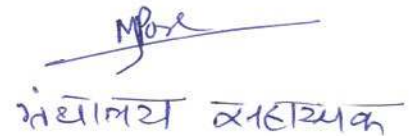 ग्रंथालय सहाय्यक